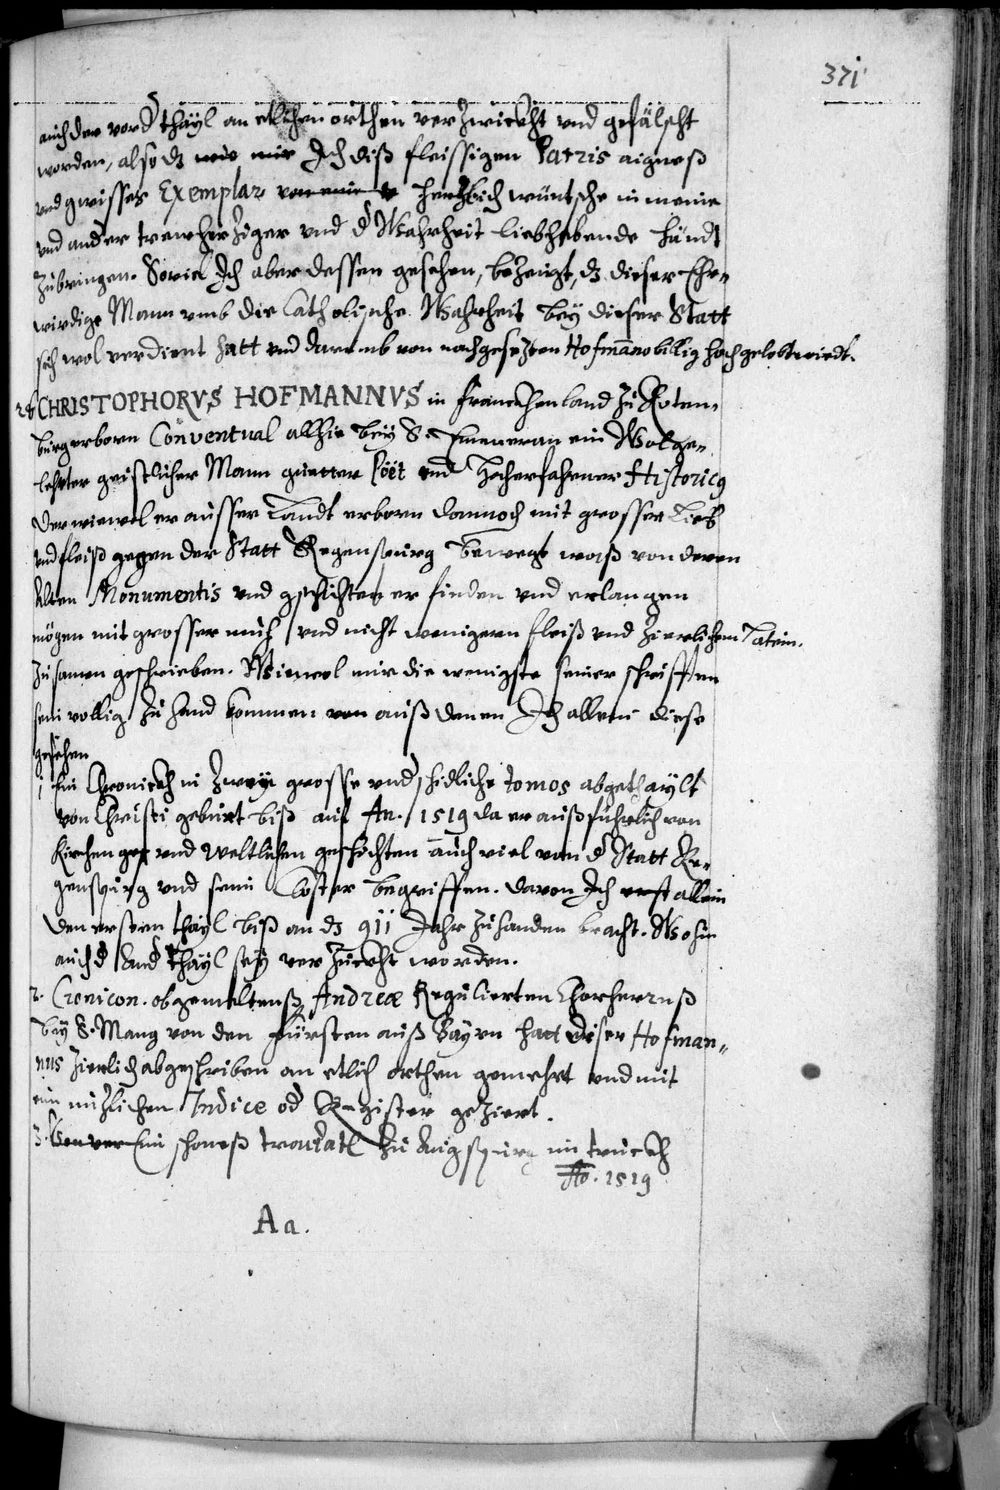 371
auch der vord thäyl an etlichen orthen verzwickht und gefälscht
worden, also dz wie mir Ich diß fleissigen Patris aigneß
und gwisses Exemplar herzlich wüntsche in meine
und ander trewherziger und d Wahrheit liebhabende händt
zubringen. Soviel Ich aber dessen gesehen, bezeugt, dz dieser Ehr-
wirdige Mann umb die Catholische Wahrheit bey dieser Statt
sich wol verdient hatt und darumb von nachgesezten Hofmanno billig hochgelobt wirdt.
28 CHRISTOPHORVS HOFMANNVS in Franckhenland zu Roten-
burg erborn Conventual allhie bey S. Emmeran ein Wolge-
lehrter geistlicher Mann guetter Poët und Hocherfahrner Historicus
der wiewol er ausser Landt erborn dannoch mit grosser Lieb
und fleiß gegen der Statt Regenspurg bewegt waß von deren
Alten Monumentis und gschichten er finden und erlangen
mögen mit grosser müh und nicht wenigern fleiß und zierlichem Latein.
Zusamen geschrieben. Wiewol mir die wenigste seiner schrifften
sein vollig zu hand kommen von auß denen Ich allein diese
gesehen
1 Ein Chronickh in zwey grosse underschidliche tomos abgethaylt
von Christi geburt biß auf An. 1519 da er außführlich von
Kirchen ges und Weltlichen geschichten auch viel von d Statt Re-
genspurg und seim Closter begriffen. davon Ich erst allein
den ersten thayl biß an dz 911 Jahr zuhanden bracht. Wohin
auch d And thayl sey verzuckht worden.
2. Cronicon. obgemeltenß Andreæ Regulierten Chorherrnß
bey S. Mang von den Fürsten auß Bayrn hatt diser Hofman-
nus zierlich abgeschriben an etlich orthen gemehrt und mit
ein nuzlichen Indice od Register geziert.
3. Ein schoneß tractatl zu Augspurg im truckh
Ao. 1519
Aa.